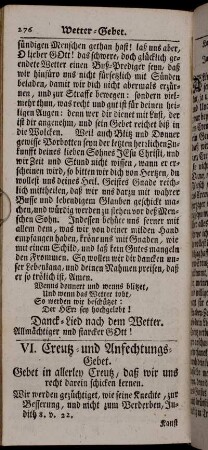 276 Wetter-Gebet.
sündigen Menschen gethan hast! laß uns aber,
O lieber GOtt! das schwere, doch glücklich ge-
endete Wetter einen Buß-Prediger seyn, daß
wir hinfüro uns nicht fürsetzlich mit Sünden
beladen, damit wir dich nicht abermals erzür-
nen, und zur Straffe bewegen: sondern viel-
mehr thun, was recht und gut ist für deinen heili-
gen Augen: denn wer dir dienet mit Lust, der
ist dir angenehm, und sein Gebet reichet biß in
die Wolcken. Weil auch Blitz und Donner
gewisse Vorbotten seyn der letzten herzlichen Zu-
kunfft deines lieben Sohnes JEsu Christi, und
wir Zeit und Stund nicht wissen, wann er er-
scheinen wird, so bitten wir dich von Hertzen, du
wollest uns deines Heil. Geistes Gnade reich-
lich mittheilen, daß wir uns darzu mit wahrer
Busse und lebendigem Glauben geschickt ma-
chen, und würdig werden zu stehen vor des Men-
schen Sohn. Indessen behüte uns mit allem
dem, was wir von deiner milden Hand
empfangen haben, kröne uns mit Gnaden, wie
mit einem Schild, und laß kein Gutes mangeln
den Frommen. So wollen wir dir dancken un-
ser Lebenlang, und deinen Nahmen preisen, daß
er so tröstlich ist. Amen.
Wenns donnert und wenns blitzet,
Und wenn das Wetter tobt,
So werden wir beschützet:
Der HErr sey hochgelobt!
Danck-Lied nach dem Wetter.
Allmächtiger und starcker GOtt!
VI. Creutz- und Anfechtungs-
Gebet.
Gebet in allerley Creutz, daß wir uns
recht darein schicken lernen.
Wir werden gezüchtiget, wie seine Knechte, zur
Besserung, und nicht zum Verderben, Ju-
dith 8. v. 22.
Kanst